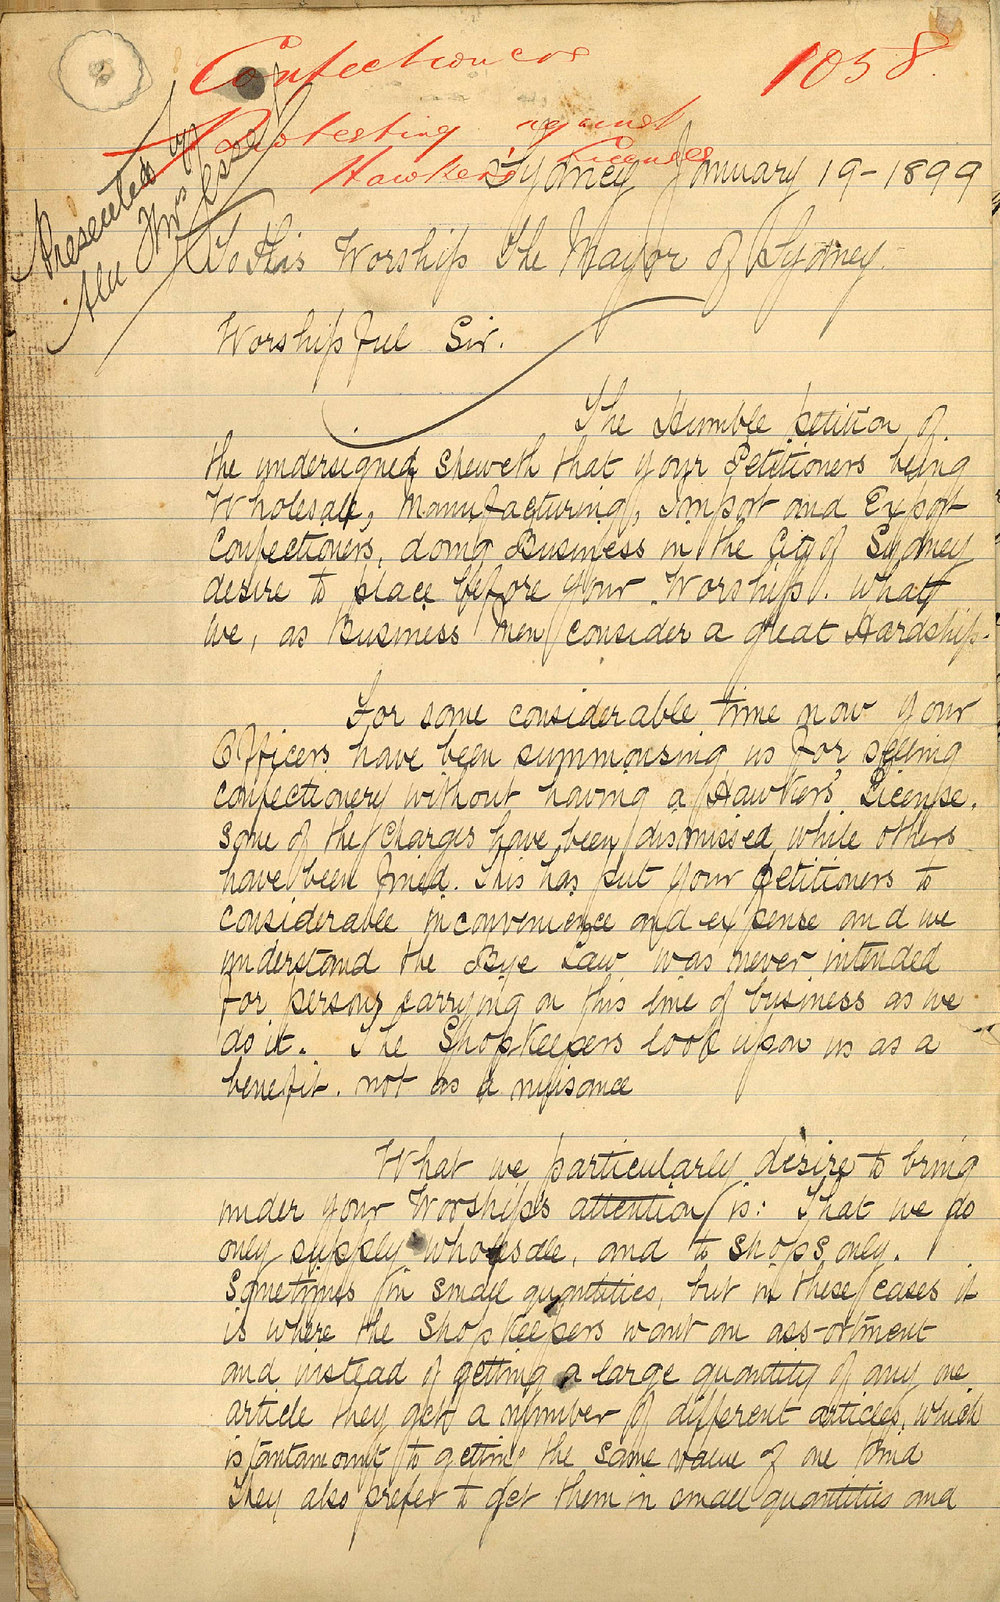 Confectioners 1058
Protesting against
Hawkers Licenses
Presented by
Ald
Sydney January 19-1899
To His Worship The Mayor of Sydney
Worshipful Sir.
The Humble petition of
the undersigned sheweth that your Petitioners being
Wholesale, Manufacturing, Import and Export
Confectioners, doing Business in the City of Sydney
desire to place before your Worship. what
we, as Business Men consider a great Hardship-
For some considerable time now your
Officers have been summonsing us for selling
confectionery without having a Hawkers' License.
Some of the Charges have been dismissed, while others
have been fined. This has put your petitioners to
considerable inconvenience and expense and we
understand the Bye Law was never intended
for persons carrying on this line of business as we
do it. The Shopkeepers look upon us as a
benefit. not as a nuisance
What we particularly desire to bring
under your Worship's attention is: That we do
only supply wholesale, and to shops only.
Sometimes in small quantities, but in these cases it
is where the Shopkeepers want an ass-ortment
and instead of getting a large quantity of any one
article they get a number of different articles, which
is tantamount to getting the same value of one kind
They also prefer to get them in small quantities and